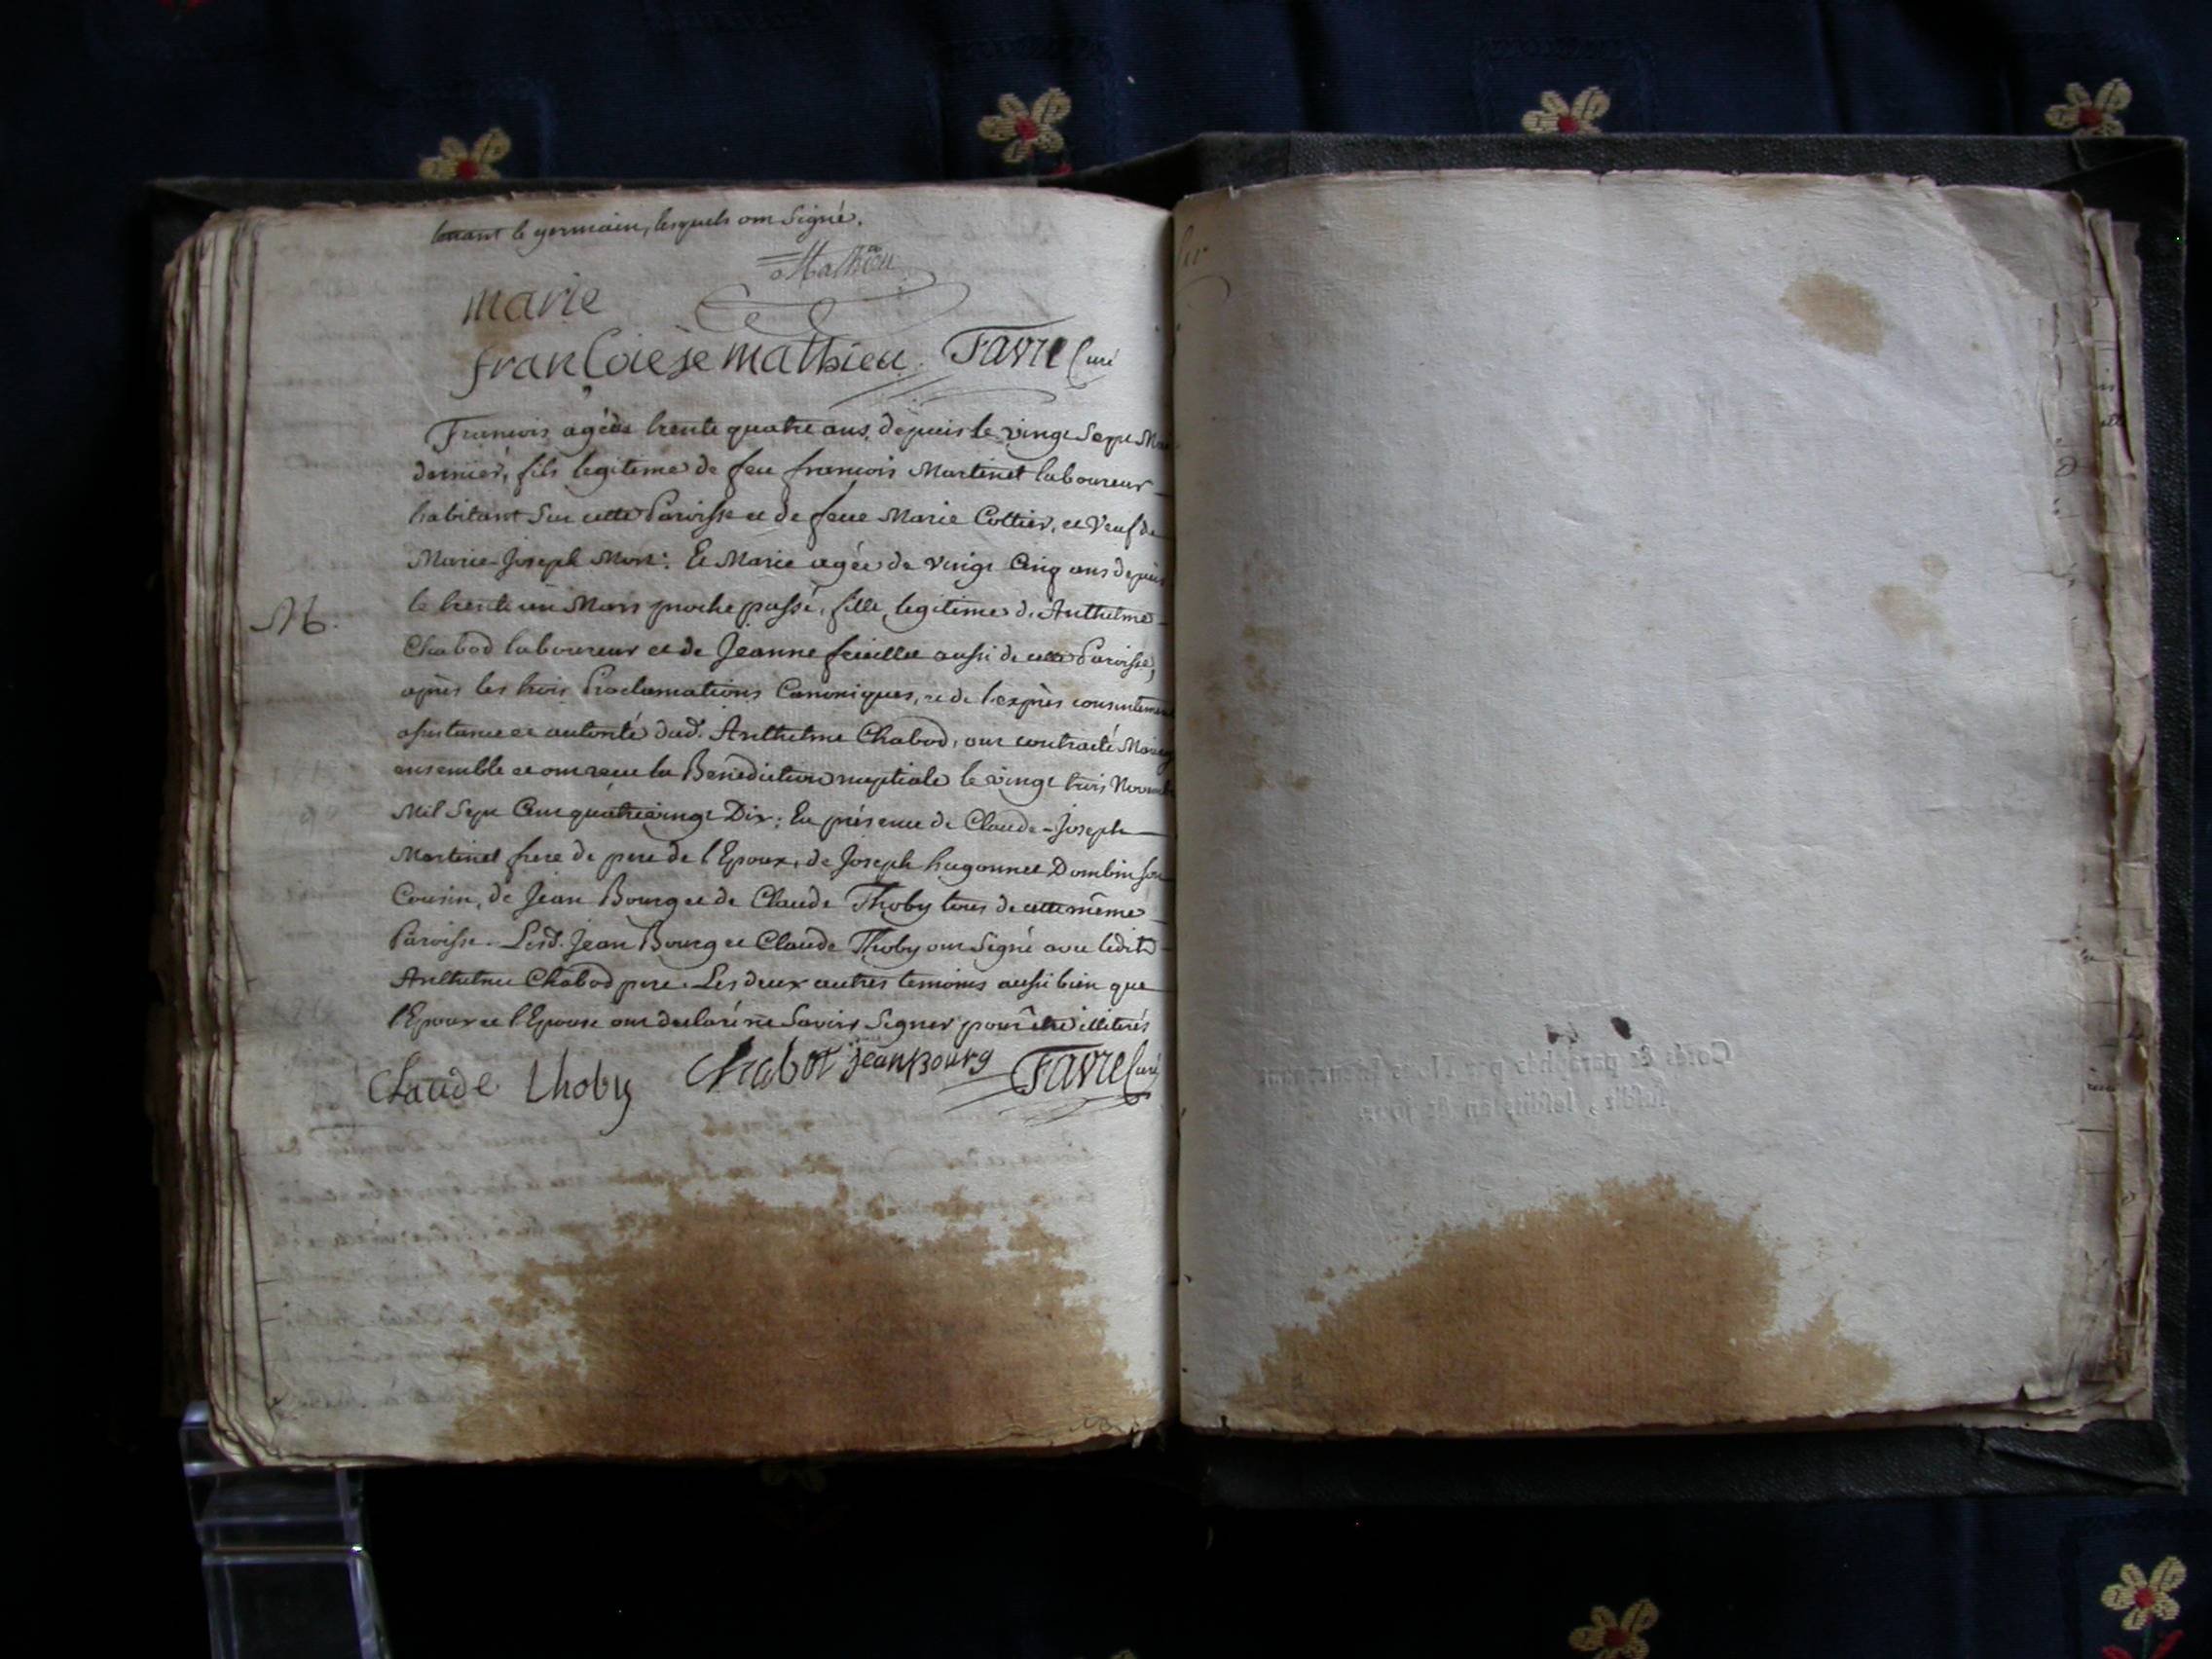 le germain, lesquels ont Signé.
Mathieu
marie
françoiese mathieu Favre Curé
François agé de trente quatre ans, depuis le vingt Sept
dernier, fils legitime de feu francois Martinet laboureur
habitant Sur cette Paroisse et de feue Marie Cottier, et Veuf de
Marie-Joseph Mort: Et Marie agée de vingt Cinq ans depuis
M. le trente un Mars proche passé, fille legitime d'Anthelme
Chabod laboureur et de Jeanne feuillet aussi de cette Paroisse,
après les trois Proclamations Canoniques, et de l'exprès consentement
assistance et autorité dud. Anthelme Chabod, ont contracté Mariage
ensemble et ont reçu la Benediction nuptiale le vingt trois Novembre
Mil Sept Cent quatrevingt Dix; En présence de Claude-Joseph
Martinet frere de pere de l'Epoux, de Joseph hugonnet Dombin son
Cousin, de Jean Bourg et de Claude Thoby tous de cette même
Paroisse. Lesd. Jean Bourg et Claude Thoby ont Signé avec ledit
Anthelme Chabod pere. Les deux autres temoins aussi bien que
l'Epoux et l'Epouse ont declaré ne Savoir Signer pour être illiterés
Claude thoby Chabot jean Bourg Favre Curé